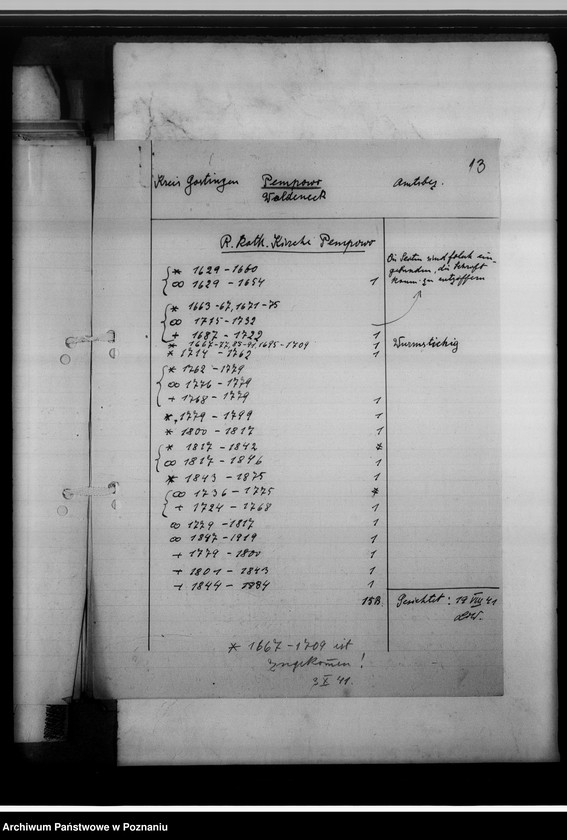 13
Kreis Gostingen Pempowo Amtsbez.
Waldeneck
R. Kath. Kirche Pempowo
* 1629-1660
∞ 1629-1654 1
Die Seiten sind falsch ein-
gebunden, die Schrift
kaum zu entziffern
* 1663-67, 1671-75
∞ 1715-1732
+ 1687-1722 1
* 1667-77, 85-91, 1695-1709 1 Wurmstichig
* 1714-1762 1
* 1762-1779
∞ 1776-1779
+ 1768-1779 1
* 1779-1799 1
* 1800-1817 1
* 1817-1842
∞ 1817-1846 1
* 1843-1875 1
∞ 1736-1775
+ 1724-1768 1
∞ 1779-1817 1
∞ 1847-1919 1
+ 1779-1800 1
+ 1801-1843 1
+ 1844-1884 1
15B. Gesichtet: 19 VIII 41
* 1667-1709 ist
zugekommen!
3 X 41.
Archiwum Państwowe w Poznaniu